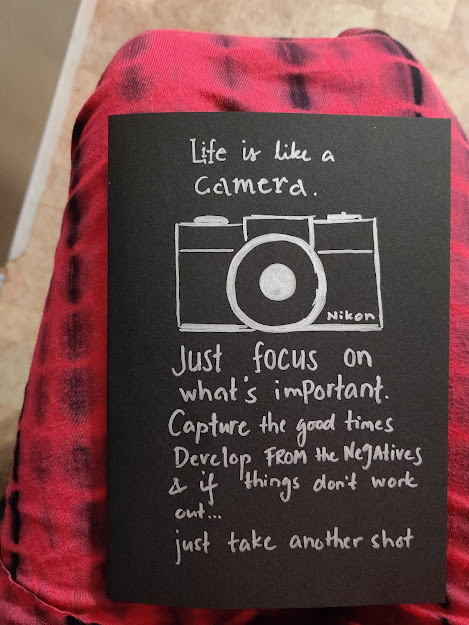 Life is like a
camera.
Nikon
Just focus on
what's important.
Capture the good times
Develop FROM the Negatives
& if things don't work
out...
just take another shot